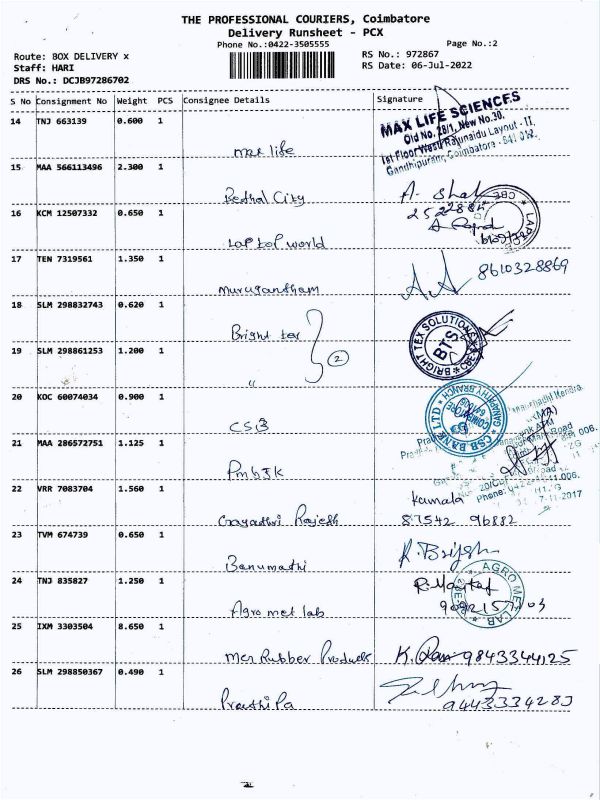 THE PROFESSIONAL COURIERS, Coimbatore
Delivery Runsheet - PCX
Phone No.:0422-3505555
Page No.:2
Route: BOX DELIVERY x
RS No.: 972867
Staff: HARI
RS Date: 06-Jul-2022
DRS No.: DCJB97286702
S No Consignment No Weight PCS Consignee Details Signature
14 TNJ 663139 0.600 1 max life
MAX LIFE SCIENCES
Old No. 28/1, New No.30,
1st Floor West Rajunaidu Layout - II,
Gandhipuram, Coimbatore - 641 012.
15 MAA 566113496 2.300 1 City
A. Shah
16 KCM 12507332 0.650 1 Laptop world
17 TEN 7319561 1.350 1 Murugandham
8610328869
18 SLM 298832743 0.620 1 Bright tex
BRIGHT TEX SOLUTIONS
BTS
19 SLM 298861253 1.200 1 "
2
20 KOC 60074034 0.900 1 CSB
CSB BANK LTD
GANAPATHY BRANCH
COIMBATORE
21 MAA 286572751 1.125 1 PmbJK
22 VRR 7083704 1.560 1 Gayathri Rajesh
Kamala
87542 96882
23 TVM 674739 0.650 1 Banumathi
K. Brijesh
24 TNJ 835827 1.250 1 Agro met lab
AGRO MET LAB
25 IXM 3303504 8.650 1 Rubber Products
9843344125
26 SLM 298850367 0.490 1 Prathipa